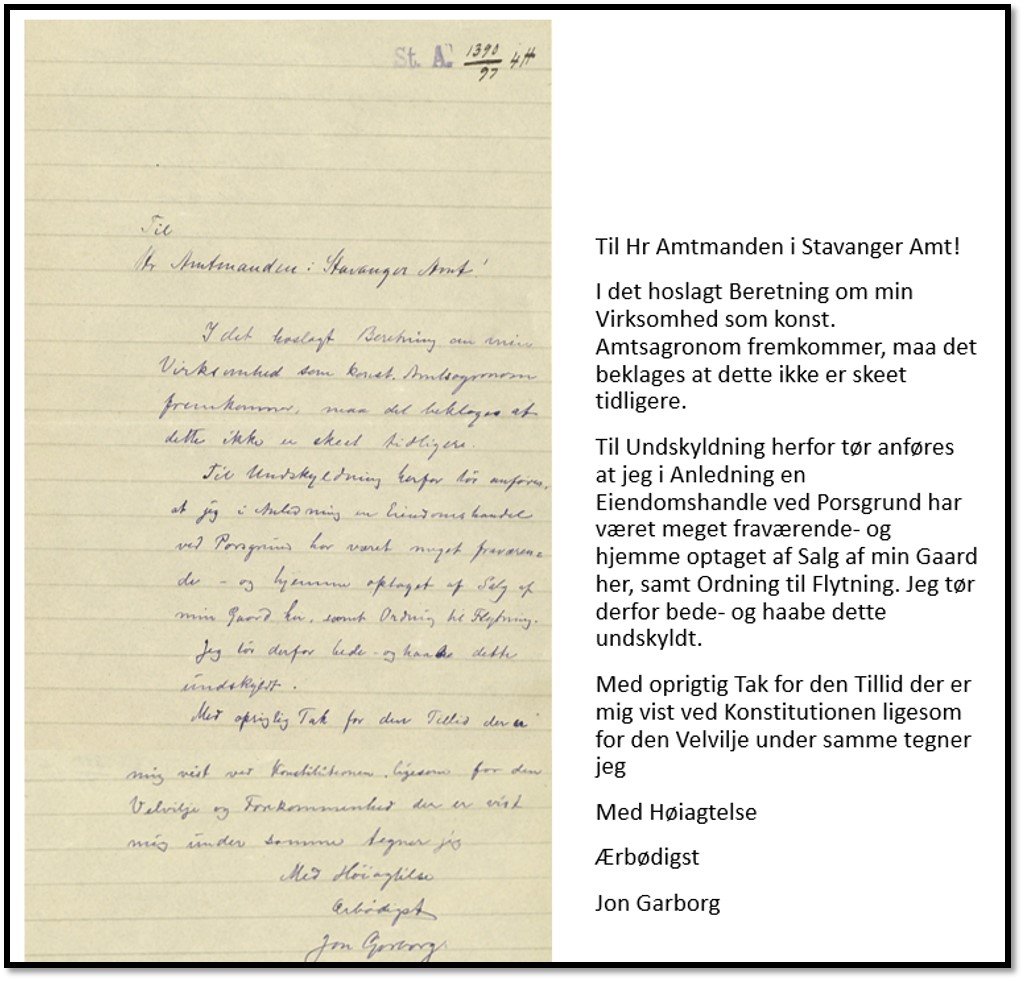 St. A. 1390/97 4H
Til
Hr Amtmanden i Stavanger Amt!
I det hoslagt Beretning om min
Virksomhed som konst. Amtsagronom
fremkommer, maa det beklages at
dette ikke er skeet tidligere.
Til Undskyldning herfor tør anføres,
at jeg i Anledning en Eiendomshandel
ved Porsgrund har været meget fraværen-
de - og hjemme optaget af Salg af
min Gaard her, samt Ordning til Flytning.
Jeg tør derfor bede - og haabe dette
undskyldt.
Med oprigtig Tak for den Tillid der er
mig vist ved Konstitutionen, ligesom for den
Velvilje og Forekommenhed der er vist
mig under samme tegner jeg
Med Höiagtelse
Ærbødigst
Jon Garborg.
Til Hr Amtmanden i Stavanger Amt!
I det hoslagt Beretning om min
Virksomhed som konst.
Amtsagronom fremkommer, maa det
beklages at dette ikke er skeet
tidligere.
Til Undskyldning herfor tør anføres
at jeg i Anledning en
Eiendomshandle ved Porsgrund har
været meget fraværende- og
hjemme optaget af Salg af min Gaard
her, samt Ordning til Flytning. Jeg tør
derfor bede- og haabe dette
undskyldt.
Med oprigtig Tak for den Tillid der er
mig vist ved Konstitutionen ligesom
for den Velvilje under samme tegner
jeg
Med Høiagtelse
Ærbødigst
Jon Garborg